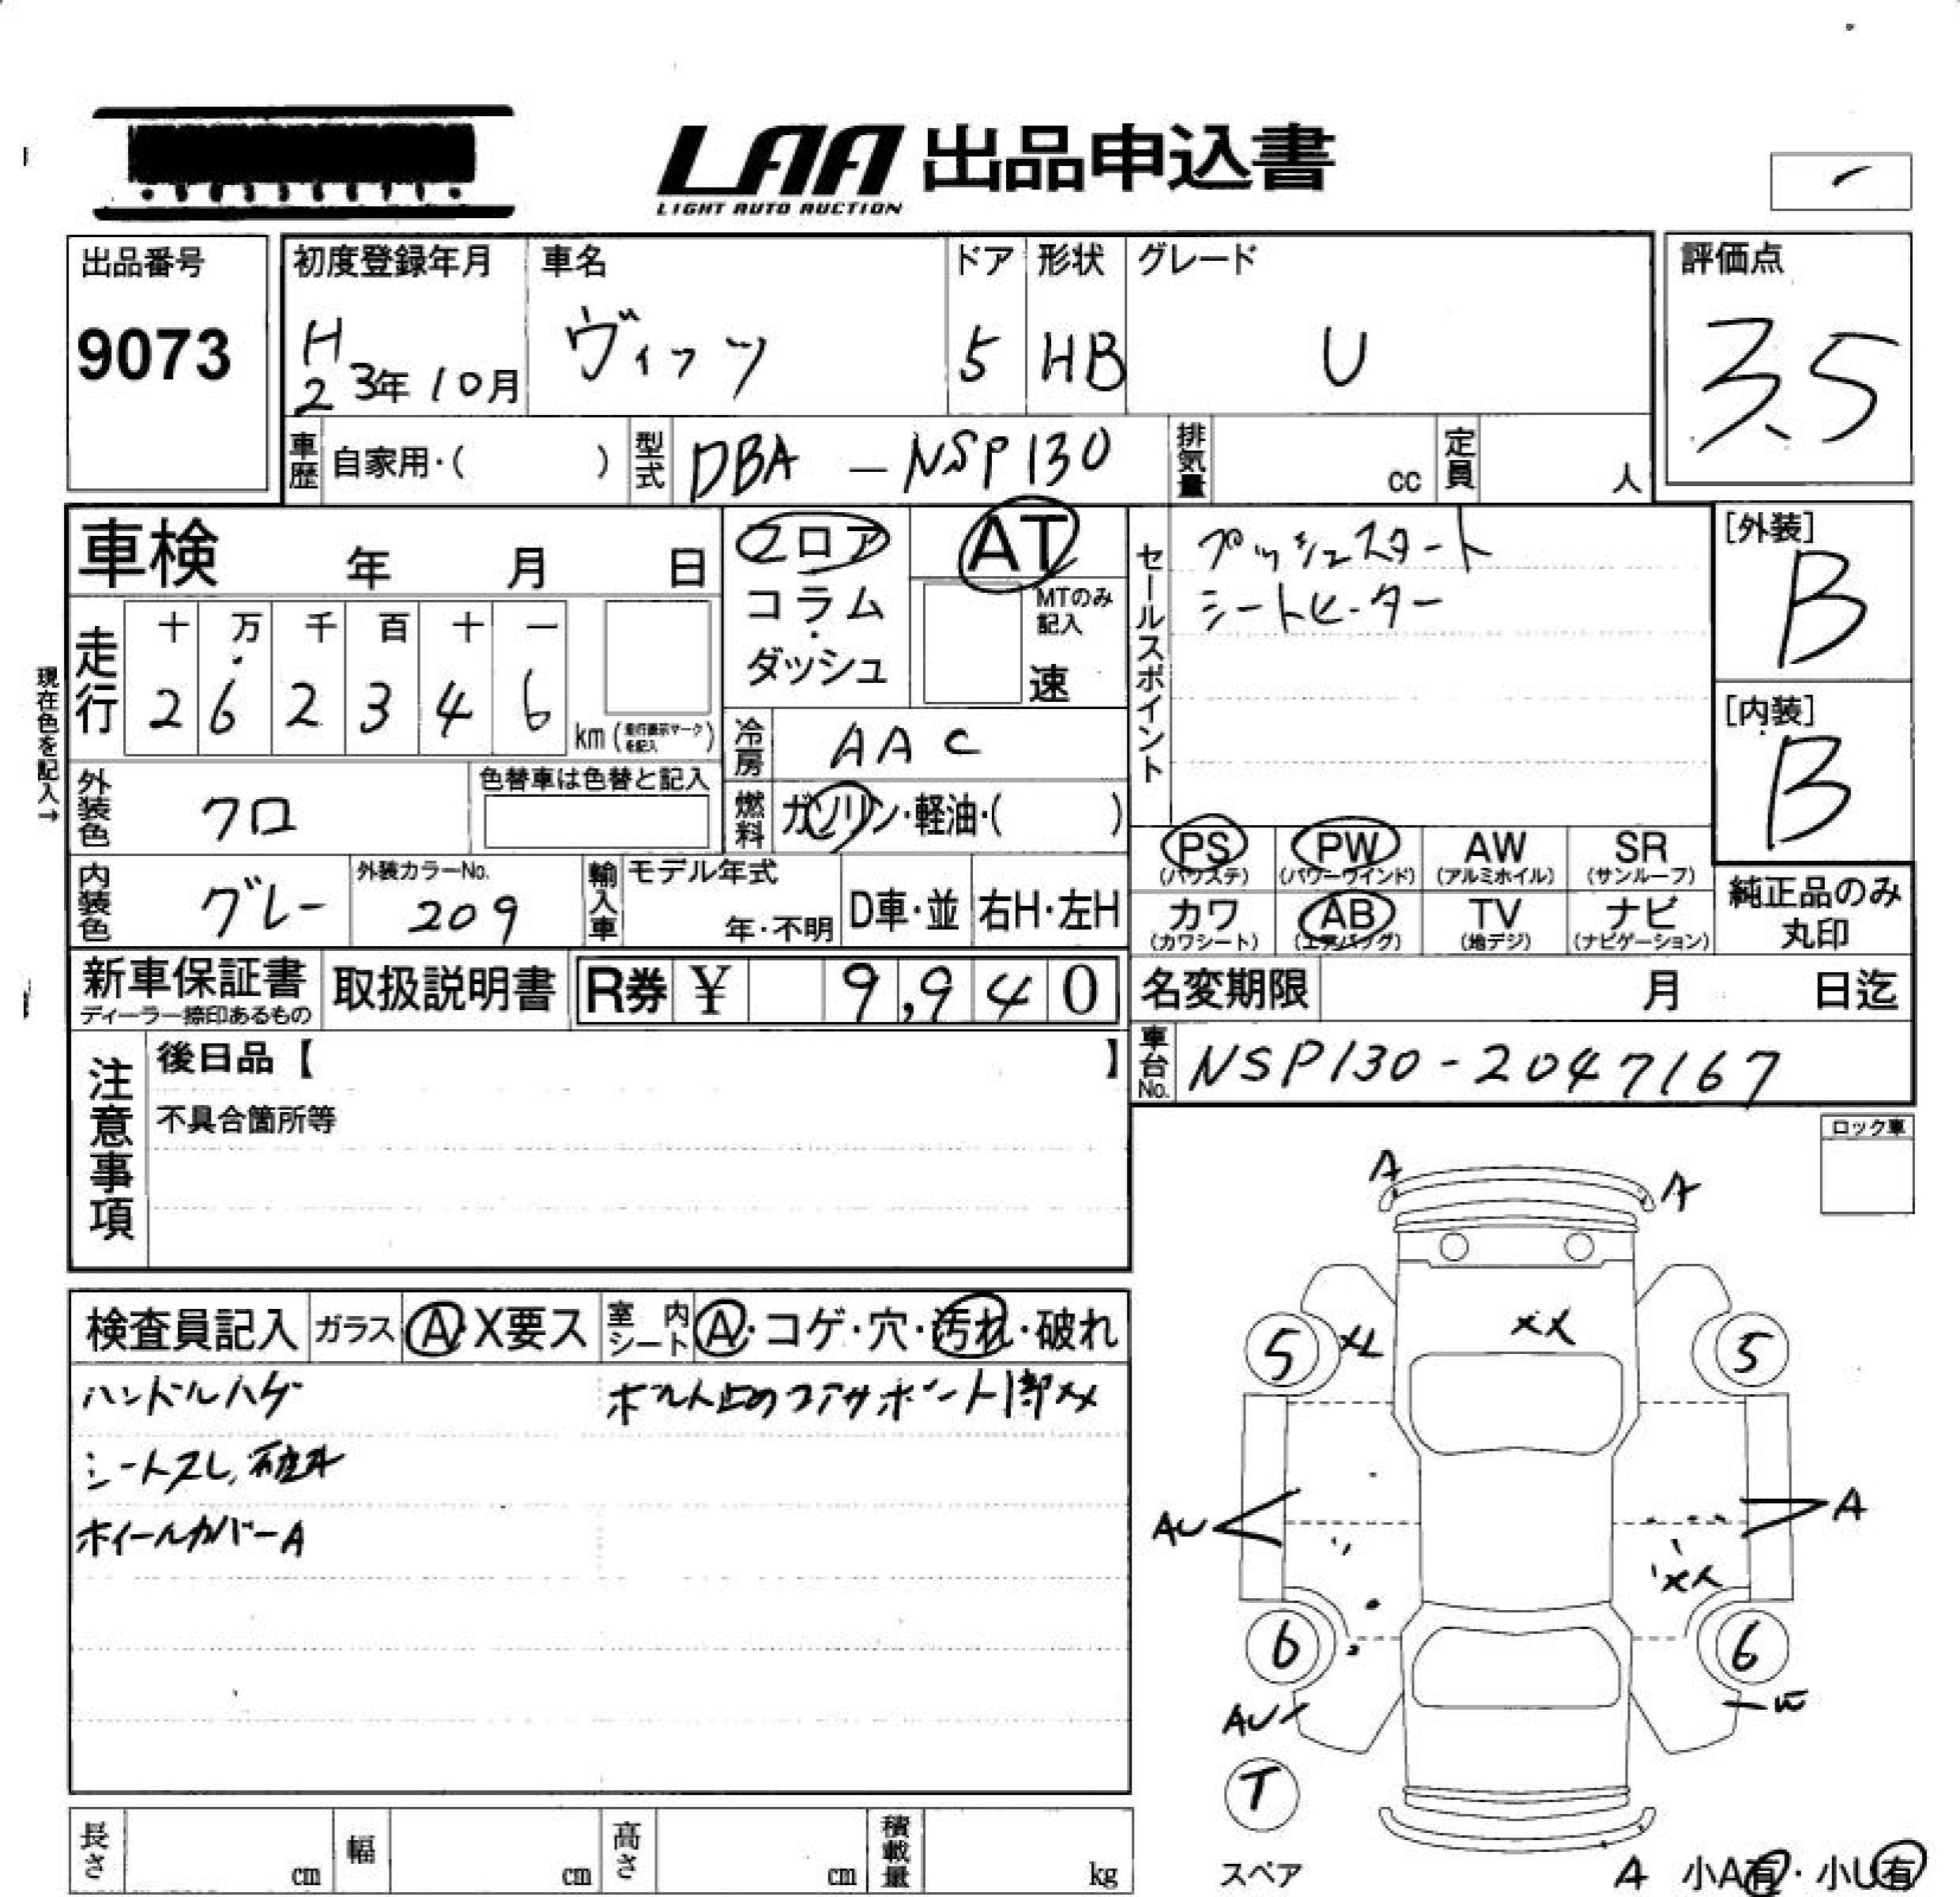 LAA 出品申込書
LIGHT AUTO AUCTION
出品番号
9073
初度登録年月
H23年10月
車名
ヴィッツ
ドア
5
形状
HB
グレード
U
評価点
3.5
車歴
自家用・( )
型式
DBA - NSP130
排気量
cc
定員
人
車検 年 月 日
フロア
コラム
・
ダッシュ
AT
MTのみ
記入
速
セールスポイント
プッシュスタート
シートヒーター
[外装]
B
[内装]
B
現在色を記入→
走行
十 万 千 百 十 一
2 6 2 3 4 6
km(走行表示マークを記入)
冷房
AAC
外装色
クロ
色替車は色替と記入
燃料
ガソリン・軽油・( )
PS
(パワステ)
PW
(パワーウインド)
AW
(アルミホイル)
SR
(サンルーフ)
内装色
グレー
外装カラーNo.
209
輸入車
モデル年式
年・不明
D車・並
右H・左H
カワ
(カワシート)
AB
(エアバッグ)
TV
(地デジ)
ナビ
(ナビゲーション)
純正品のみ
丸印
新車保証書
ディーラー捺印あるもの
取扱説明書
R券 ¥ 9,940
名変期限 月 日迄
注意事項
後日品【 】
不具合箇所等
車台No.
NSP130-2047167
ロック車
A
A
検査員記入
ガラス
A・X要ス
室内シート
A・コゲ・穴・汚れ・破れ
ハンドルハゲ
シートスレ、
ホイールカバーA
ボルト止めコアサポート1部XX
XX
5
5
AU
A
XX
6
6
AU
T
スペア
A 小A有・小U有
長さ
cm
幅
cm
高さ
cm
積載量
kg